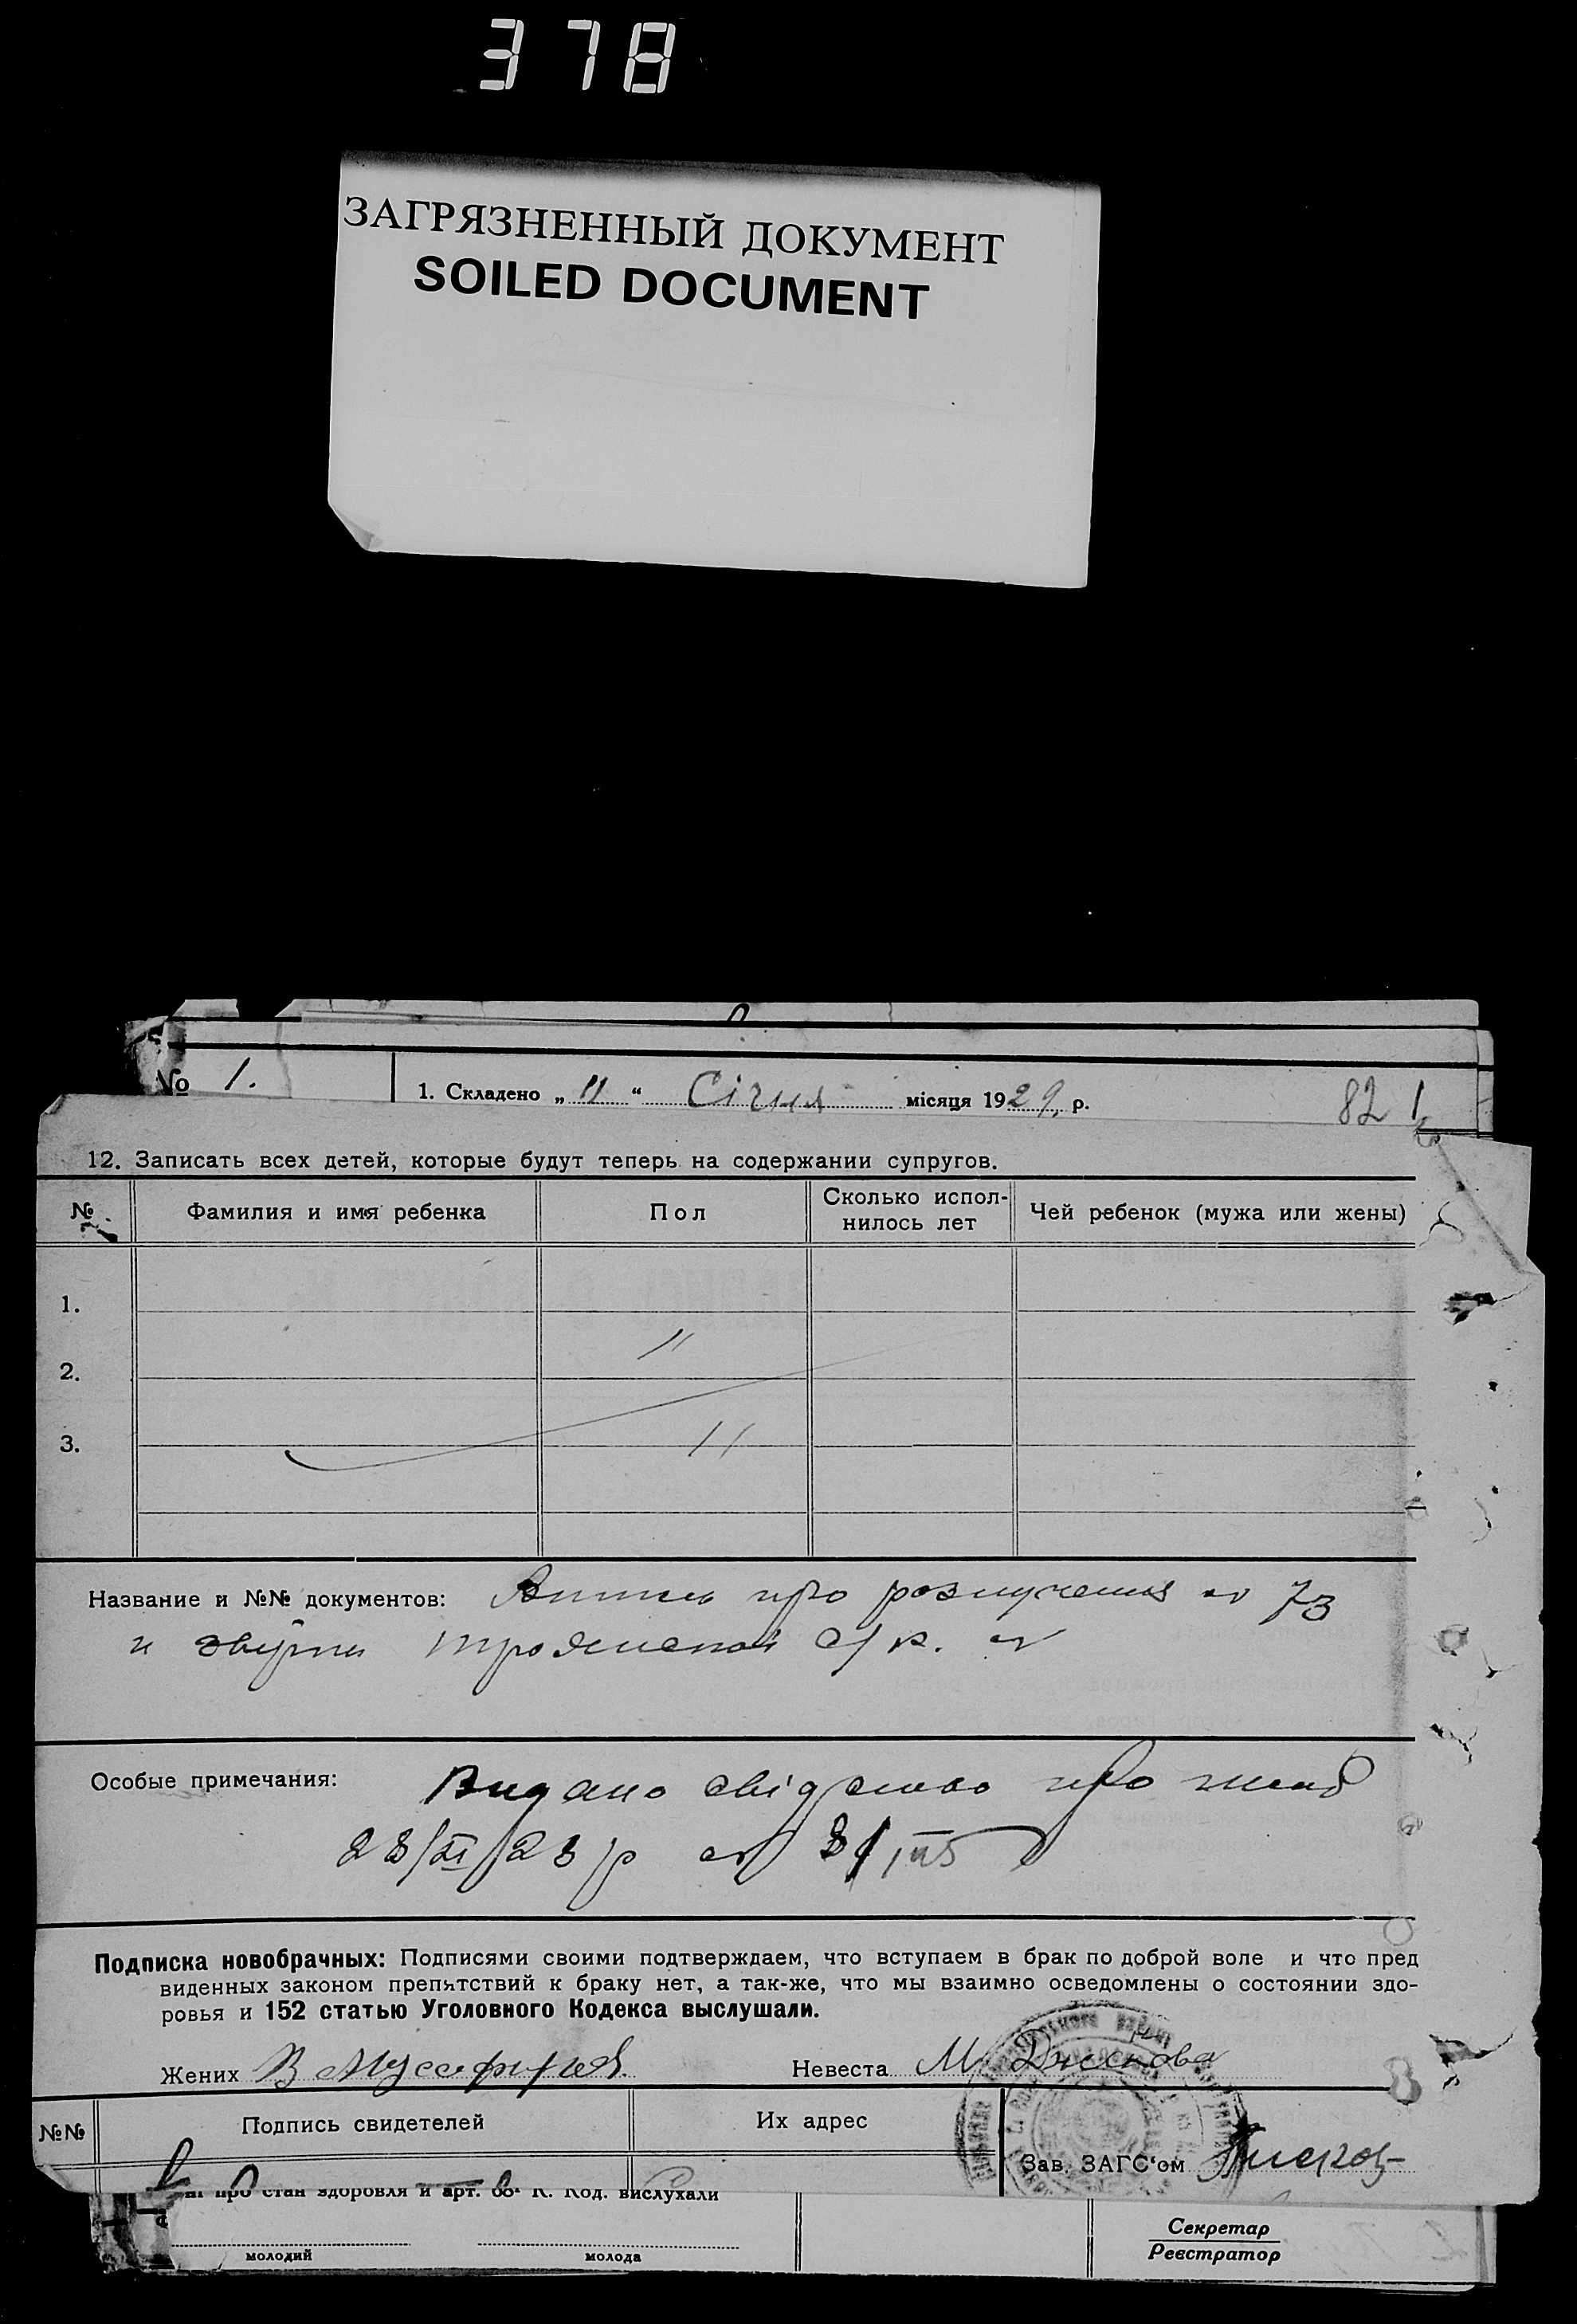 378
ЗАГРЯЗНЕННЫЙ ДОКУМЕНТ
SOILED DOCUMENT
№ 1.
1. Складено „ 11 “ Січня місяця 1929. р.
82 1
12. Записать всех детей, которые будут теперь на содержании супругов.
№ Фамилия и имя ребенка Пол Сколько испол-нилось лет Чей ребенок (мужа или жены)
1.
"
2.
3. "
Название и №№ документов: про № 73
и с/р. №
Особые примечания: Видано свідоцтво про шлюб
28/XI/23 р №
Подписка новобрачных: Подписями своими подтверждаем, что вступаем в брак по доброй воле и что пред
виденных законом препятствий к браку нет, а так-же, что мы взаимно осведомлены о состоянии здо-
ровья и 152 статью Уголовного Кодекса выслушали.
Жених В Невеста М
№№ Подпись свидетелей Их адрес
Зав. ЗАГС‘ом
про стан здоровля й арт. К. Код. вислухали
молодий молода
Секретар
Реєстратор